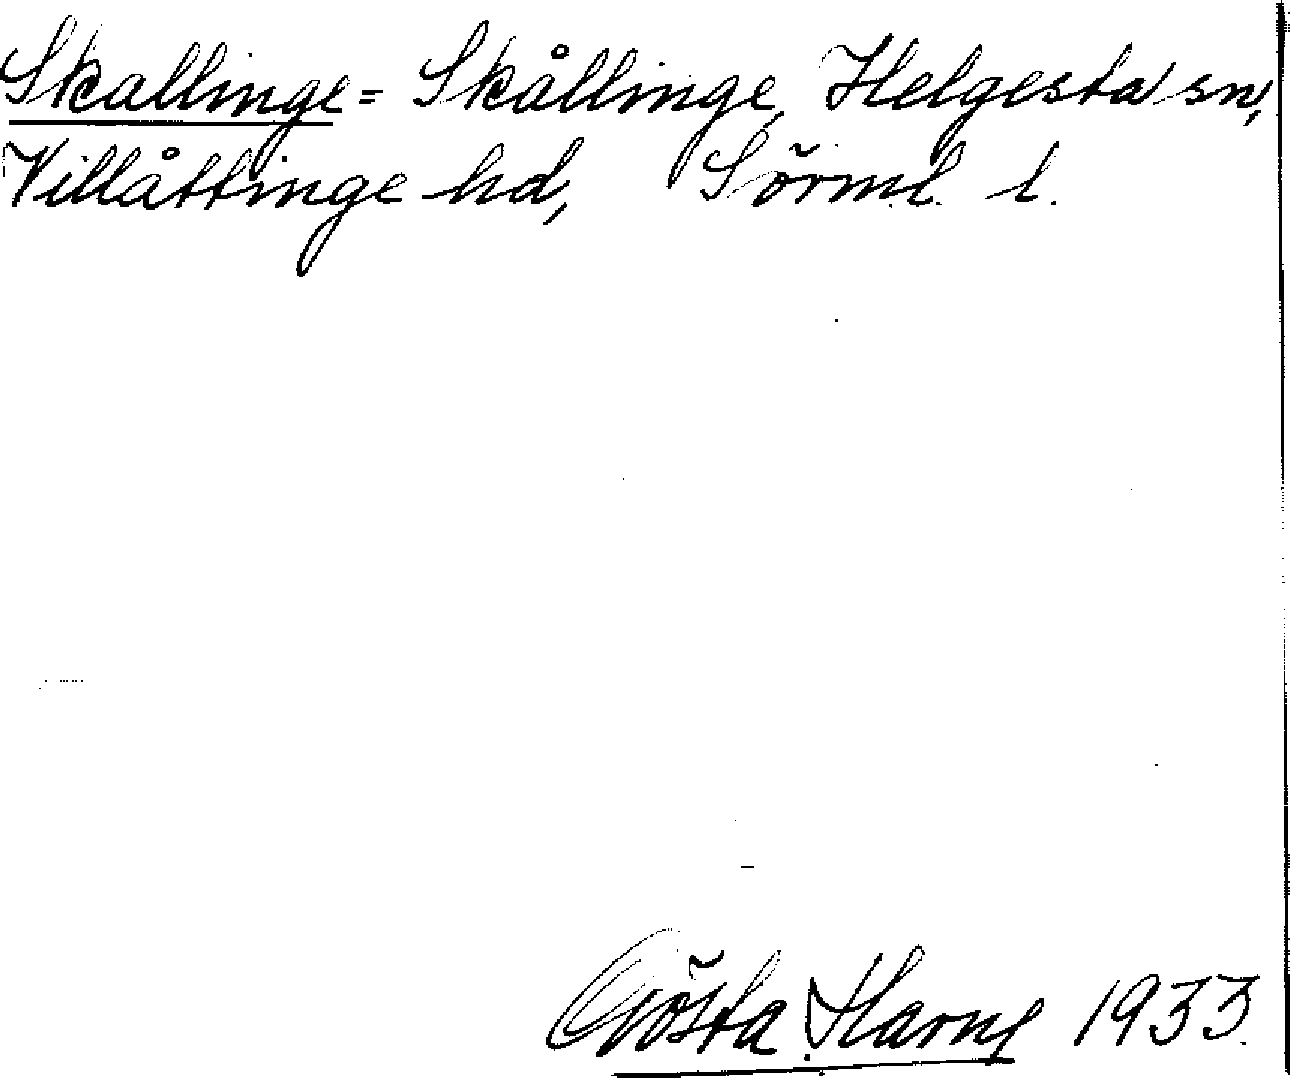 Skallinge = Skållinge, Helgesta sn,
Villåttinge hd, Sörml. l.
Gösta Harne 1933.